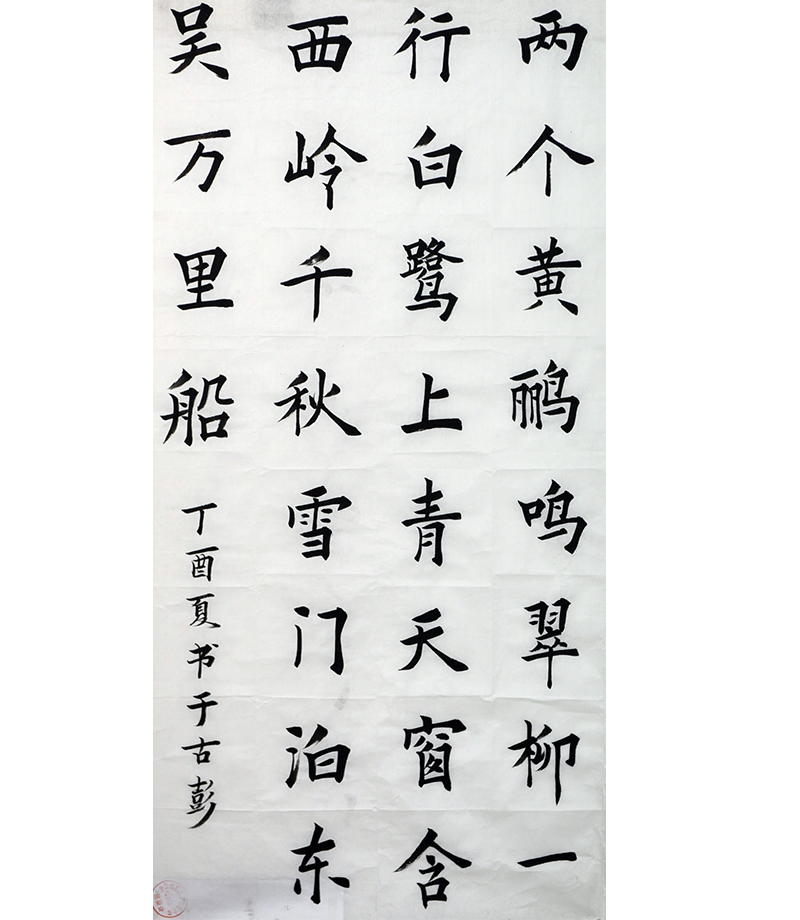 两个黄鹂鸣翠柳一
行白鹭上青天窗含
西岭千秋雪门泊东
吴万里船
丁酉夏书于古彭